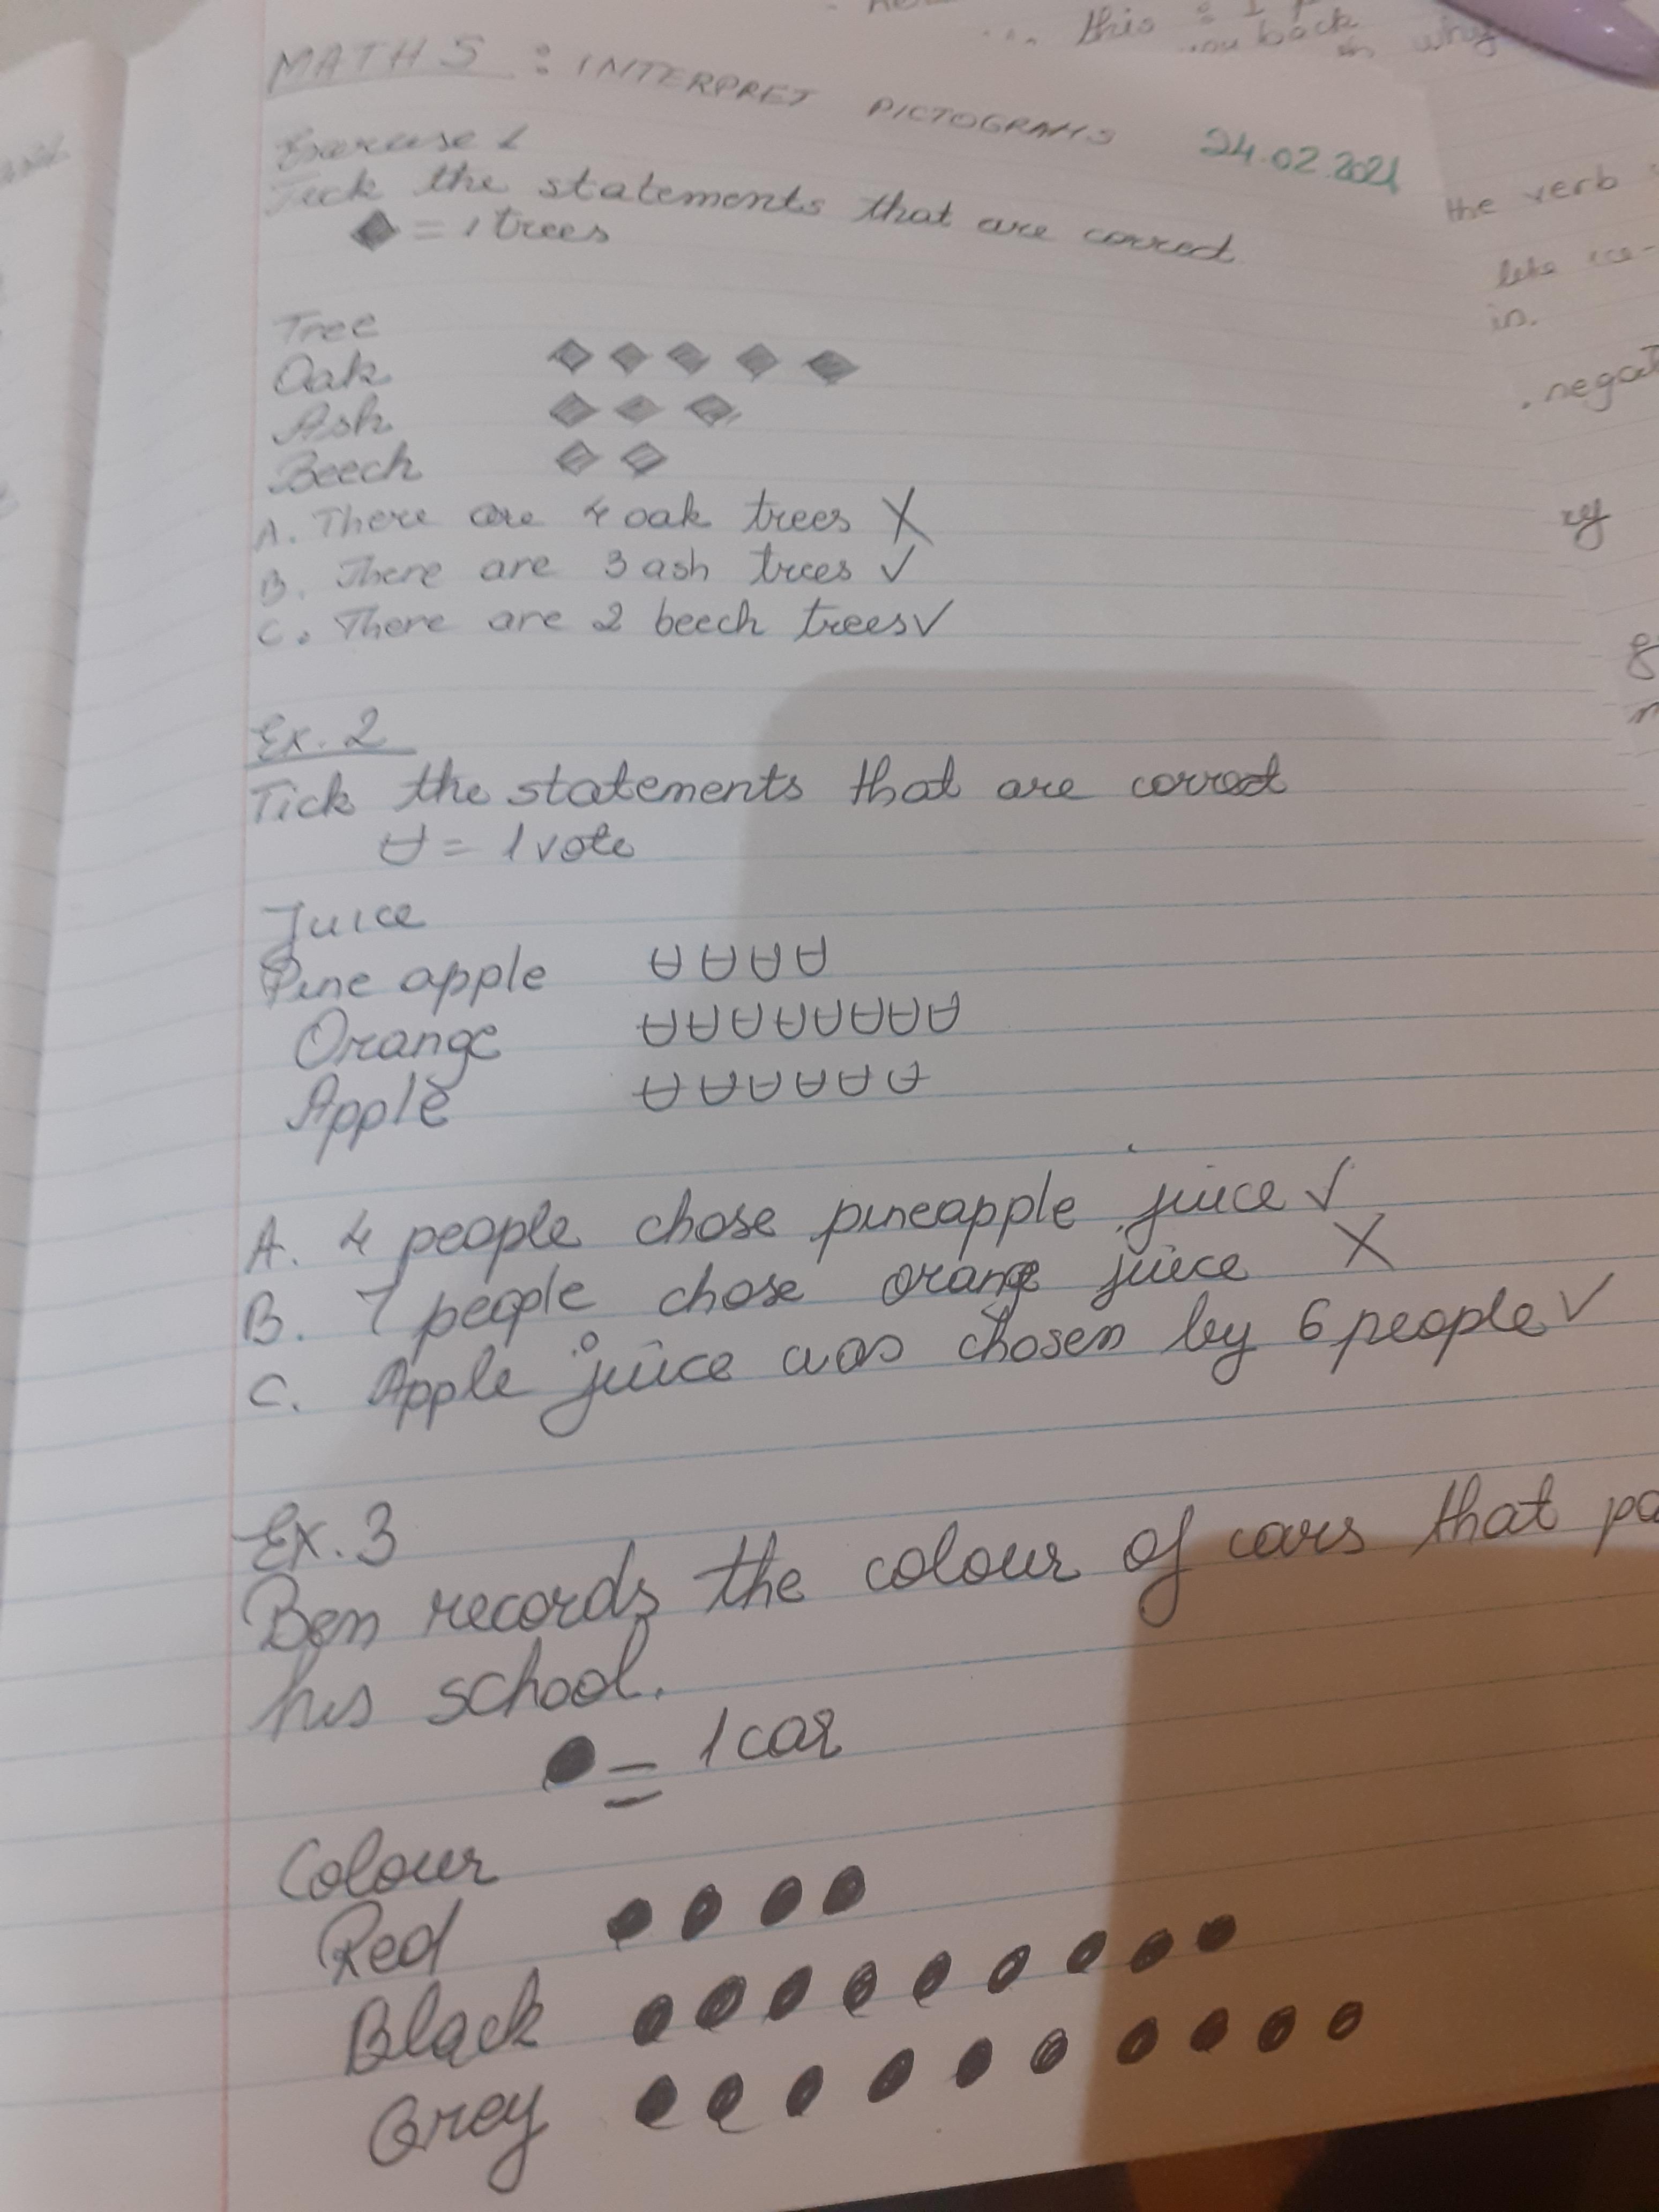 this : I
back
MATHS : INTERPRET PICTOGRAMS 24.02.2021
Exercise 1
Tick the statements that are correct
◆ = 1 trees
Tree
Oak ◆ ◆ ◆ ◆ ◆
Ash ◆ ◆ ◆
Beech ◆ ◆
A. There are 4 oak trees X
B. There are 3 ash trees ✓
C. There are 2 beech trees ✓
Ex. 2
Tick the statements that are correct
∀ = 1 vote
Juice
Pine apple ∀ ∀ ∀ ∀
Orange ∀ ∀ ∀ ∀ ∀ ∀ ∀ ∀
Apple ∀ ∀ ∀ ∀ ∀ ∀
A. 4 people chose pineapple juice ✓
B. 7 people chose orange juice X
C. Apple juice was chosen by 6 people ✓
Ex. 3
Ben records the colour of cars that pa
his school.
● = 1 car
Colour
Red ● ● ● ●
Black ● ● ● ● ● ● ● ● ●
Grey ● ● ● ● ● ● ● ● ● ●
the verb
in.
negat